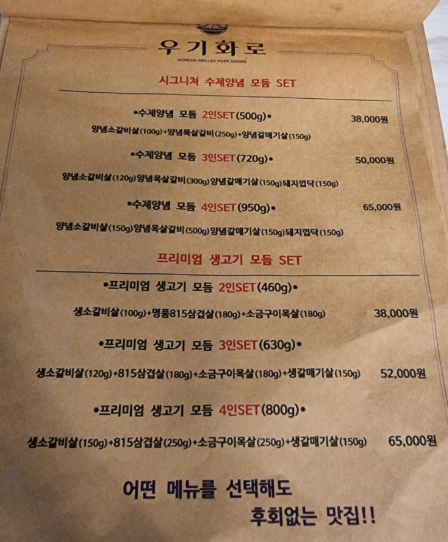 우기화로
KOREAN GRILLED PORK DINING
시그니쳐 수제양념 모듬 SET
•수제양념 모듬 2인SET(500g)•
38,000원
양념소갈비살(100g)+양념목살갈비(250g)+양념갈매기살(150g)
•수제양념 모듬 3인SET(720g)•
50,000원
양념소갈비살(120g)양념목살갈비(300g)양념갈매기살(150g)돼지껍닥(150g)
•수제양념 모듬 4인SET(950g)•
65,000원
양념소갈비살(150g)양념목살갈비(500g)양념갈매기살(150g)돼지껍닥(150g)
프리미엄 생고기 모듬 SET
•프리미엄 생고기 모듬 2인SET(460g)•
생소갈비살(100g)+명품815삼겹살(180g)+소금구이목살(180g) 38,000원
•프리미엄 생고기 모듬 3인SET(630g)•
생소갈비살(120g)+815삼겹살(180g)+소금구이목살(180g)+생갈매기살(150g) 52,000원
•프리미엄 생고기 모듬 4인SET(800g)•
생소갈비살(150g)+815삼겹살(250g)+소금구이목살(250g)+생갈매기살(150g) 65,000원
어떤 메뉴를 선택해도
후회없는 맛집!!